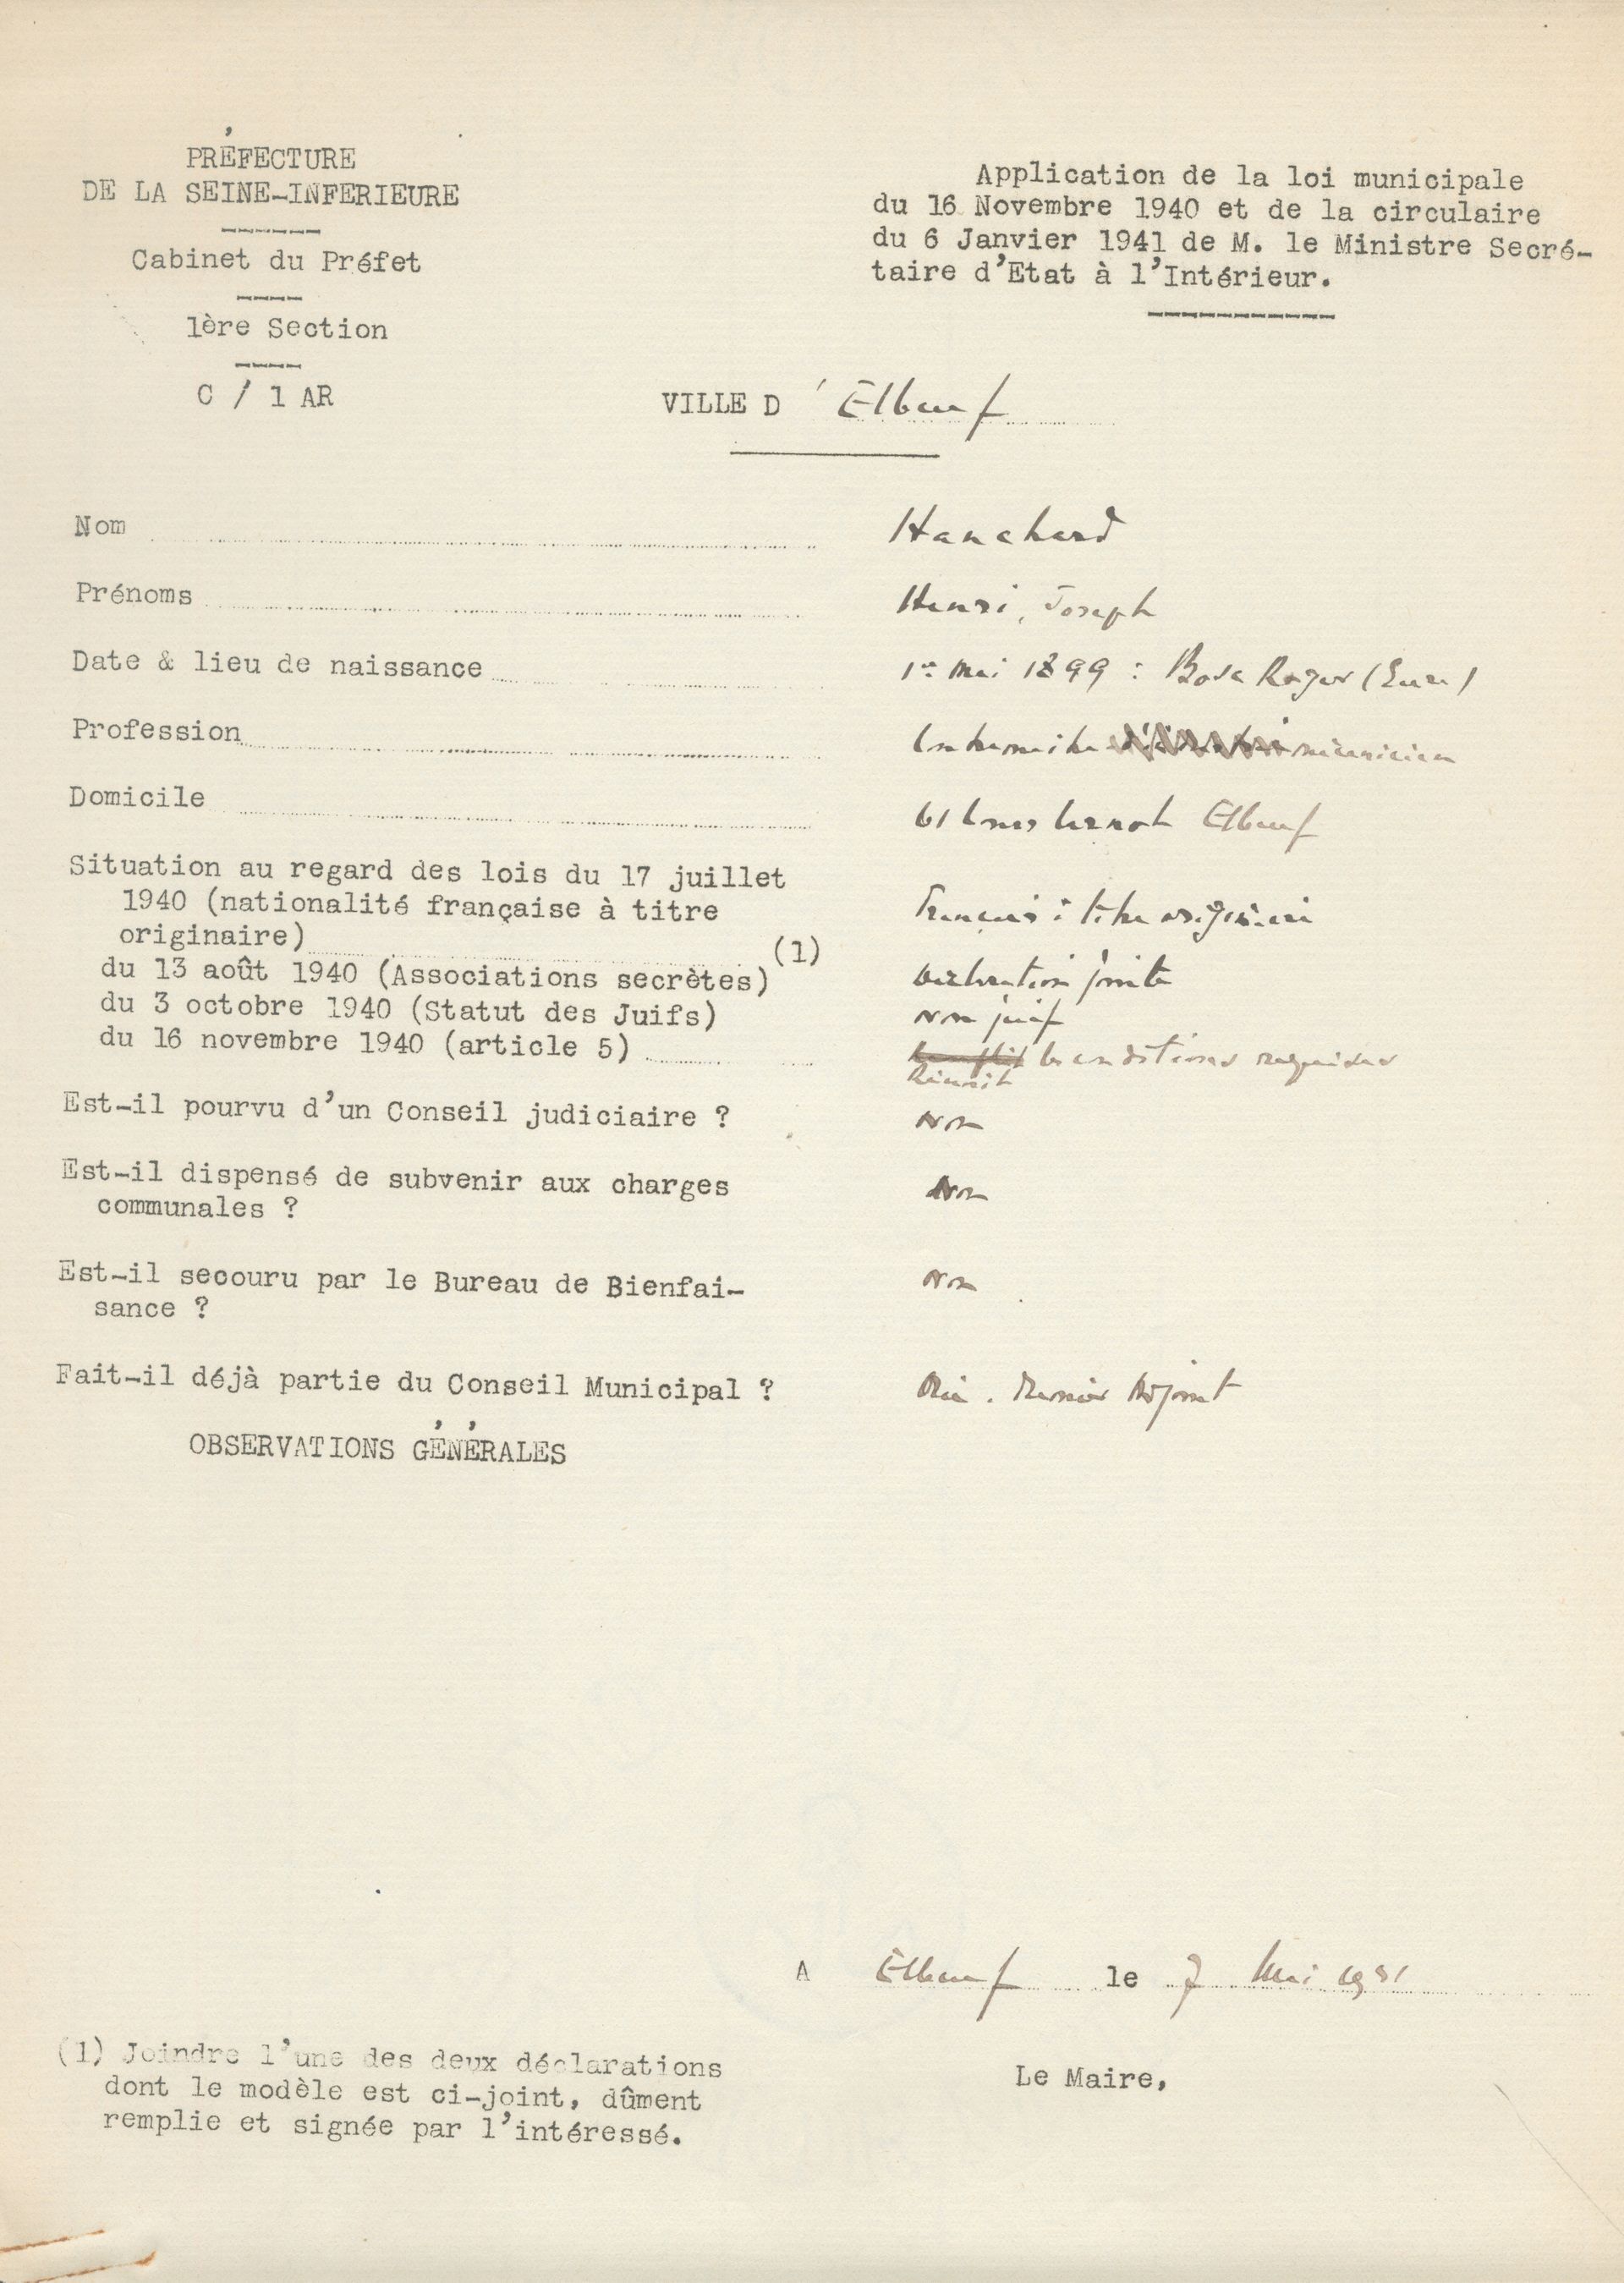 PRÉFECTURE
DE LA SEINE-INFERIEURE
Cabinet du Préfet
1ère Section
C / 1 AR
Application de la loi municipale
du 16 Novembre 1940 et de la circulaire
du 6 Janvier 1941 de M. le Ministre Secré-
taire d'Etat à l'Intérieur.
VILLE D'Elbeuf
Nom Hanchard
Prénoms Henri, Joseph
Date & lieu de naissance 1er Mai 1899 : Bosc Roger (Eure)
Profession mécanicien
Domicile 61 Cours Carnot Elbeuf
Situation au regard des lois du 17 juillet
1940 (nationalité française à titre
originaire) Français à titre originaire
du 13 août 1940 (Associations secrètes) (1) Déclaration jointe
du 3 octobre 1940 (Statut des Juifs) Non juif
du 16 novembre 1940 (article 5) Réunit les conditions requises
Est-il pourvu d'un Conseil judiciaire ? Non
Est-il dispensé de subvenir aux charges
communales ? Non
Est-il secouru par le Bureau de Bienfai-
sance ? Non
Fait-il déjà partie du Conseil Municipal ? Oui. Adjoint
OBSERVATIONS GÉNÉRALES
A Elbeuf le 7 Mai 1941
Le Maire,
(1) Joindre l'une des deux déclarations
dont le modèle est ci-joint, dûment
remplie et signée par l'intéressé.